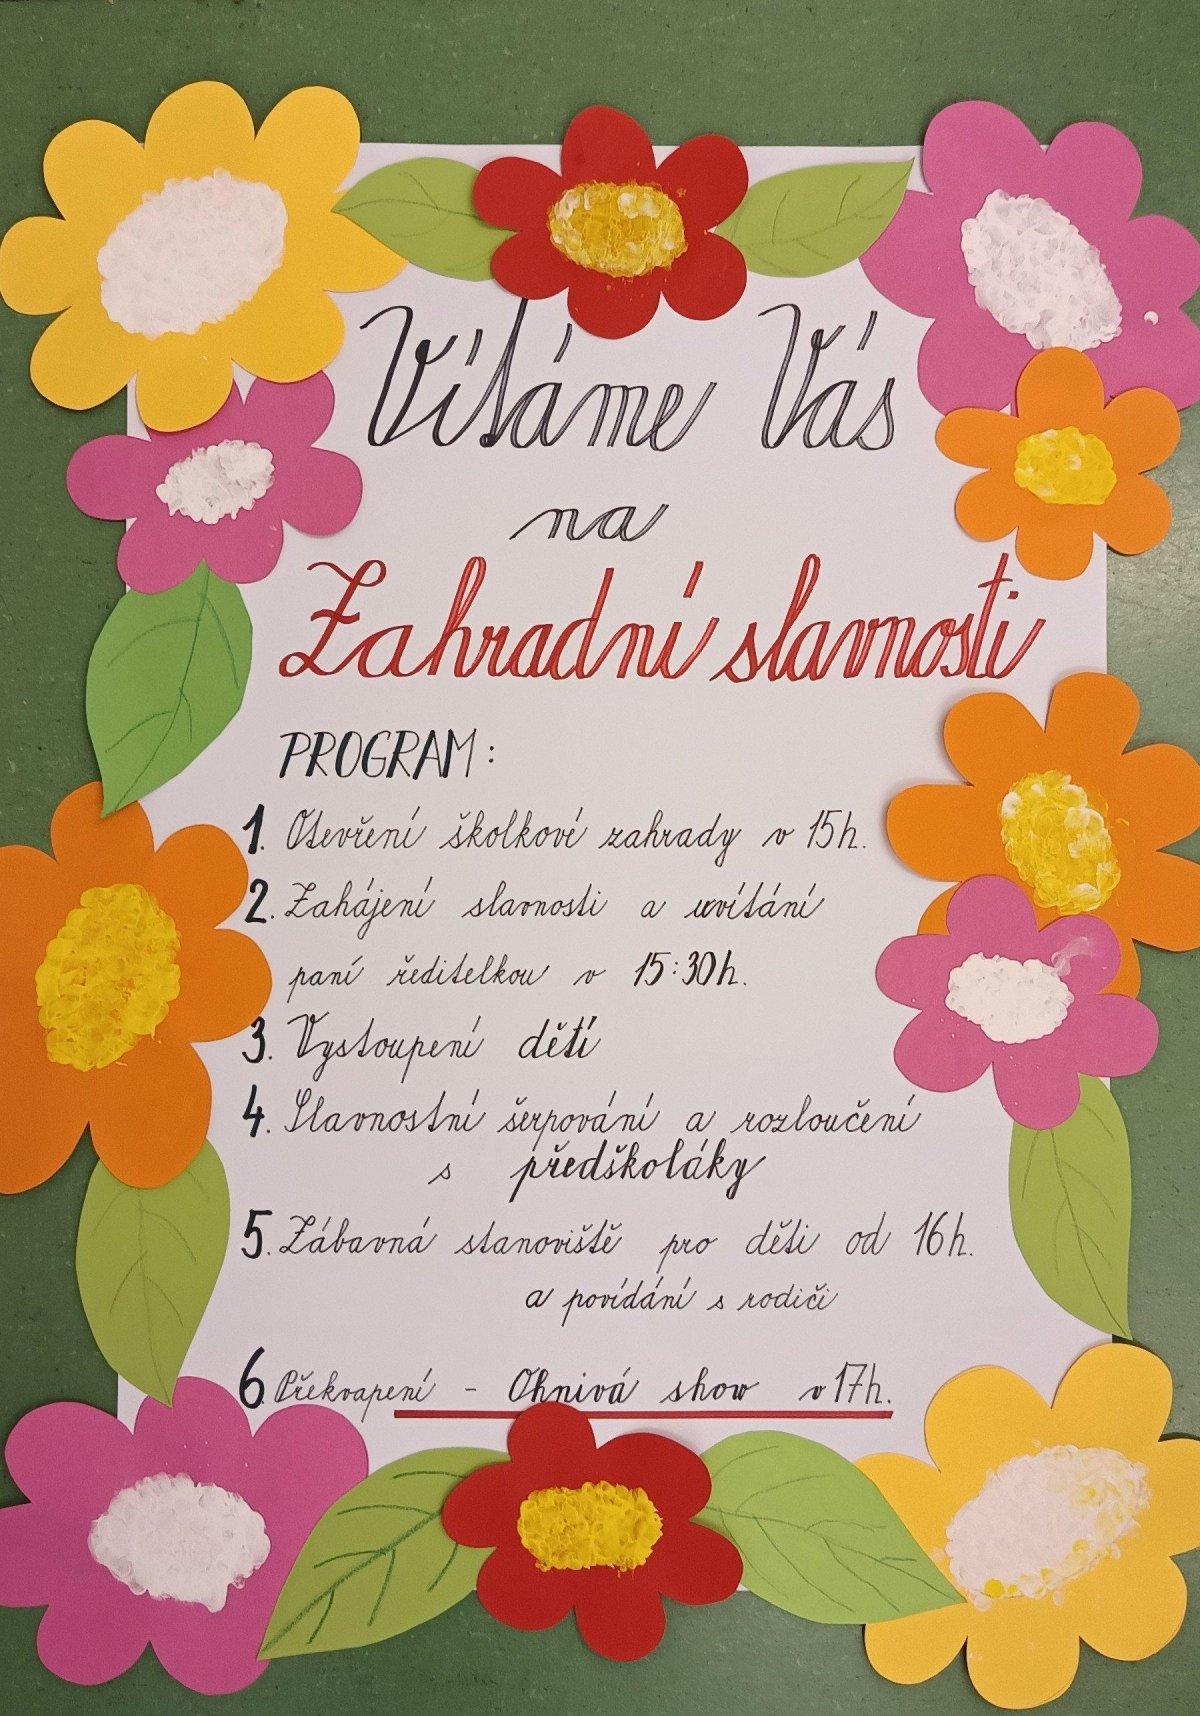 Vítáme Vás
na
Zahradní slavnosti
PROGRAM:
1. Otevření školkové zahrady v 15h.
2. Zahájení slavnosti a uvítání
paní ředitelkou v 15:30h.
3. Vystoupení dětí
4. Slavnostní šerpování a rozloučení
s předškoláky
5. Zábavná stanoviště pro děti od 16h.
a povídání s rodiči
6. Překvapení - Ohnivá show v 17h.